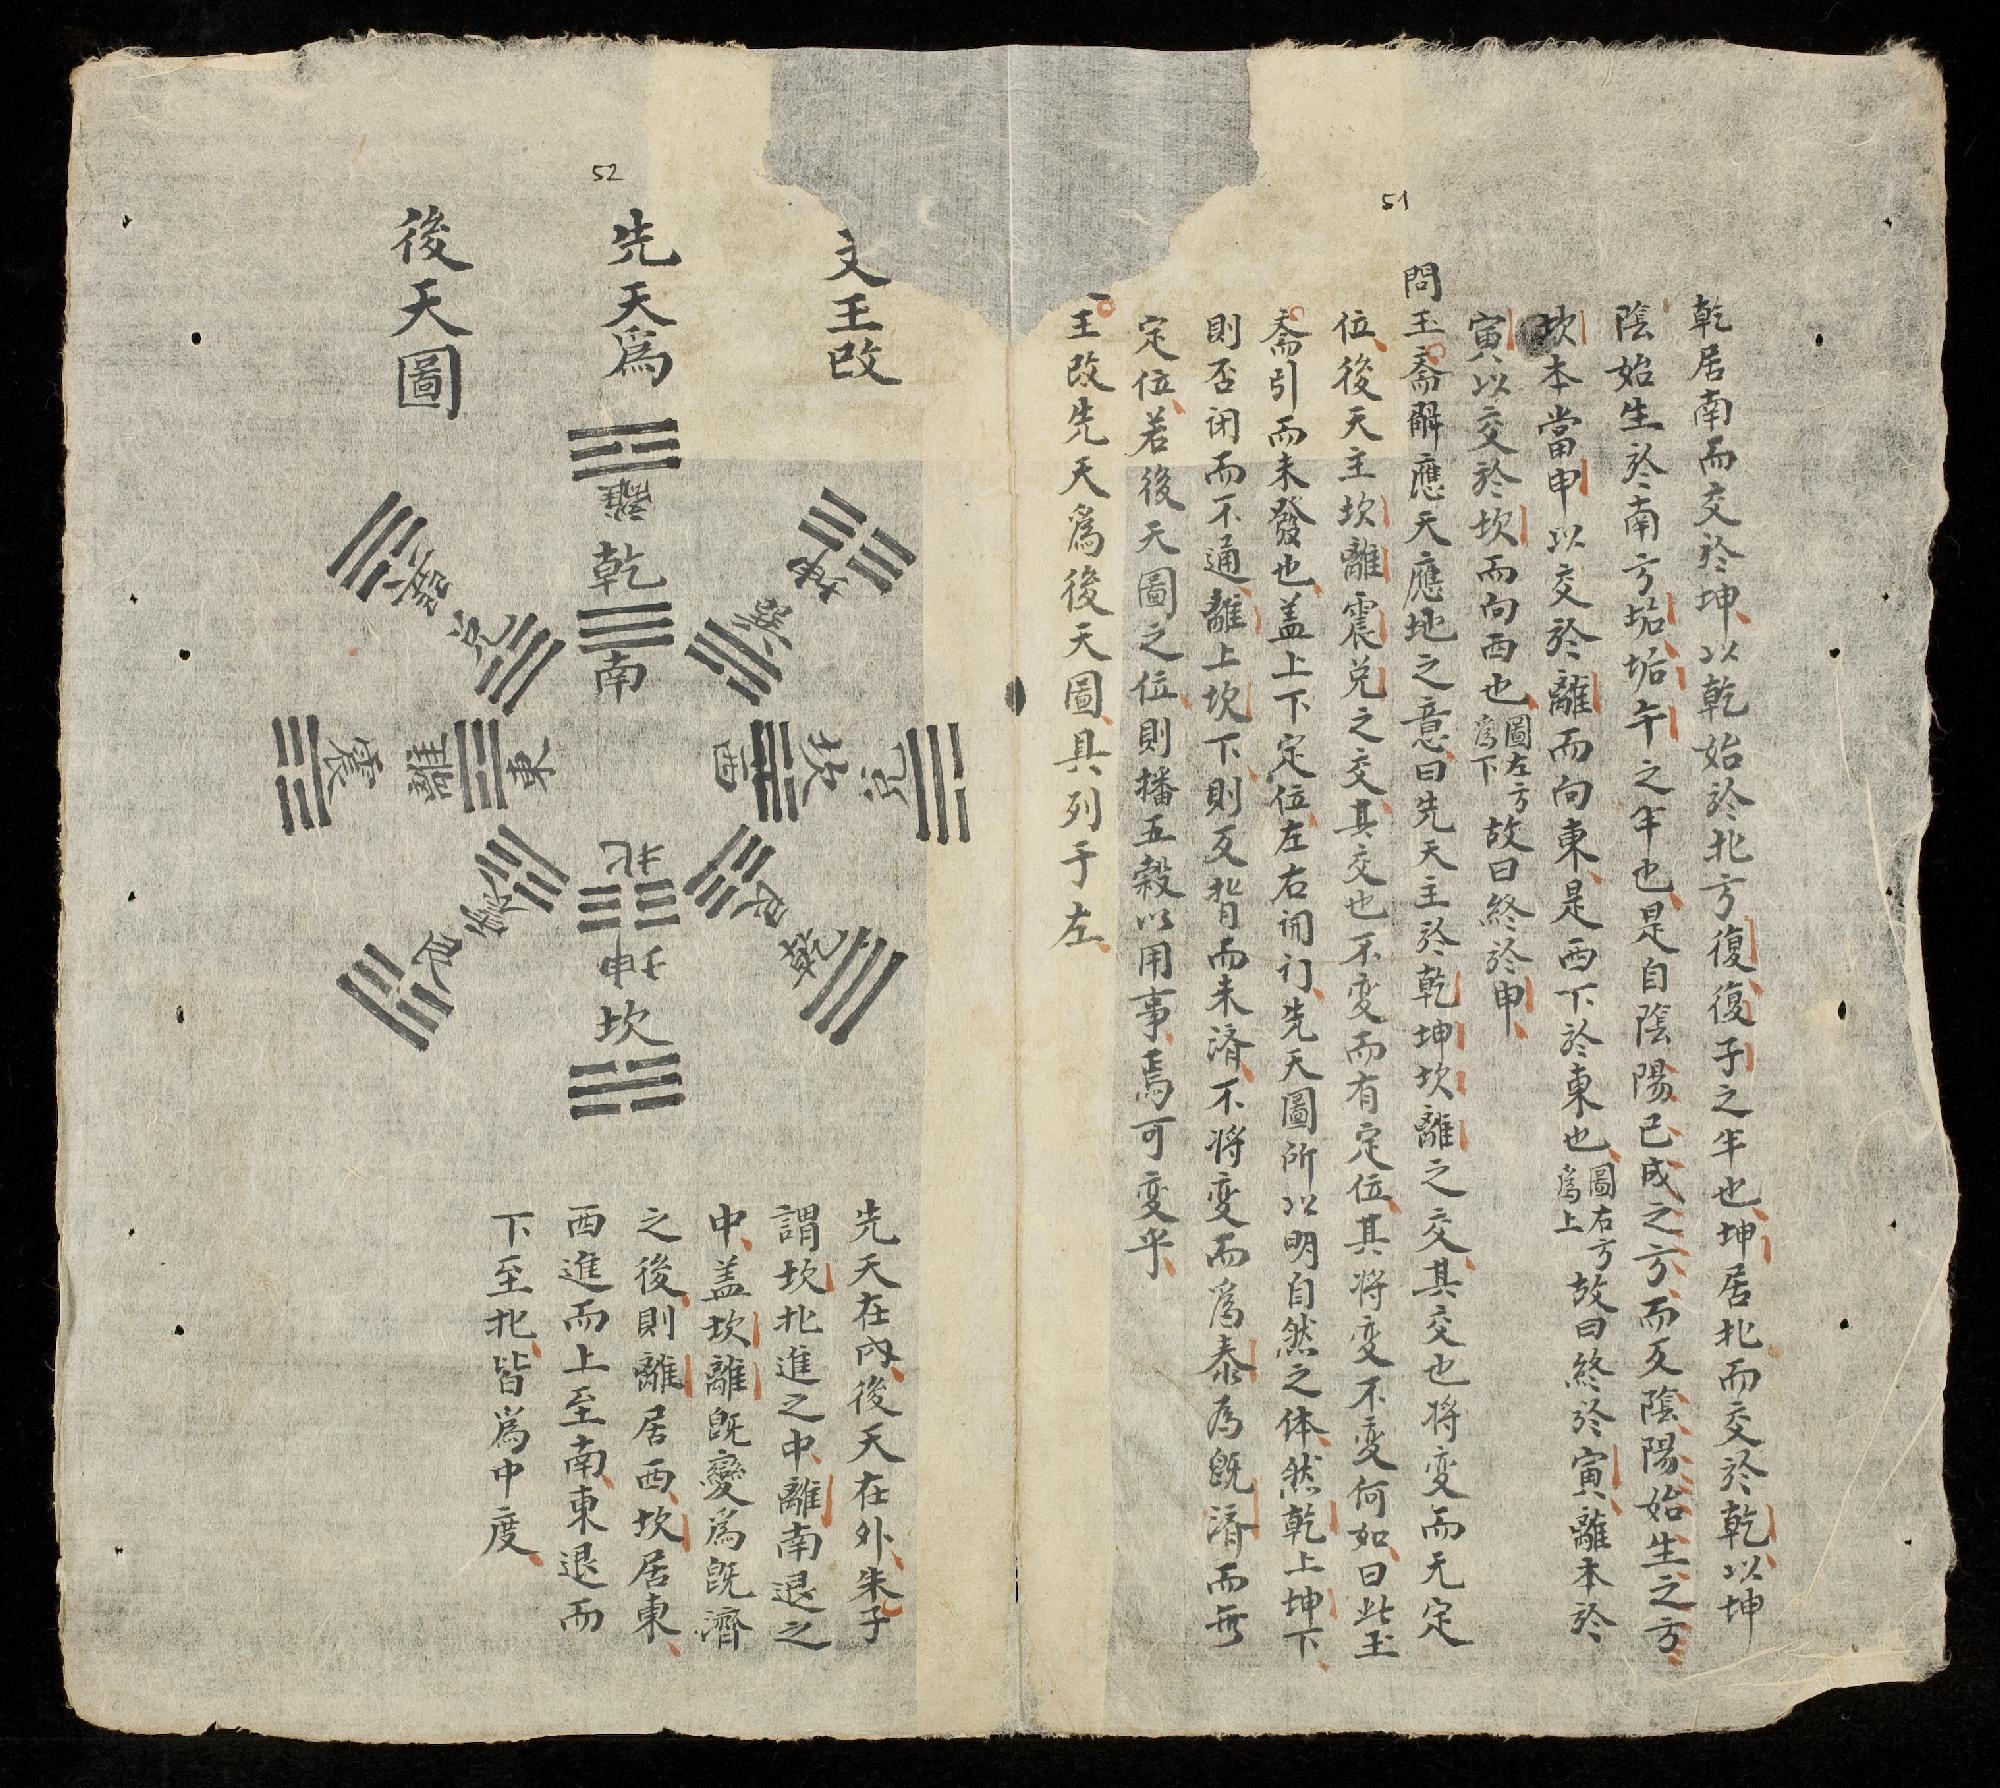 51
乾居南而交於坤以乾始於北方復復子之半也坤居北而交於乾以坤
陰始生於南方垢垢午之半也是自陰陽已成之方而反陰陽始生之方
坎本當申以交於離而向東是西下於東也圖右方爲上故曰終於寅離本於
寅以交於坎而向西也圖左方爲下故曰終於申
問玉斎觧應天應地之意曰先天主於乾坤坎離之交其交也将变而无定
位後天主坎離震兊之交其交也不变而有定位其将变不变何如曰此玉
斎引而未發也盖上下定位左右闭门先天圖所以明自然之体然乾上坤下
則否闭而不通離上坎下則反背而未済不将变而爲泰爲既済而無
定位若後天圖之位則播五榖以用事焉可变乎
王改先天爲後天圖具列于左
52
文王改
先天爲
後天圖
離
乾
南
坤
巽
兊
震
離
東
坎
西
兊
北
坤
坎
震
艮
艮
乾
先天在内後天在外朱子
謂坎北進之中離南退之
中盖坎離既變爲既濟
之後則離居西坎居東
西進而上至南東退而
下至北皆爲中度